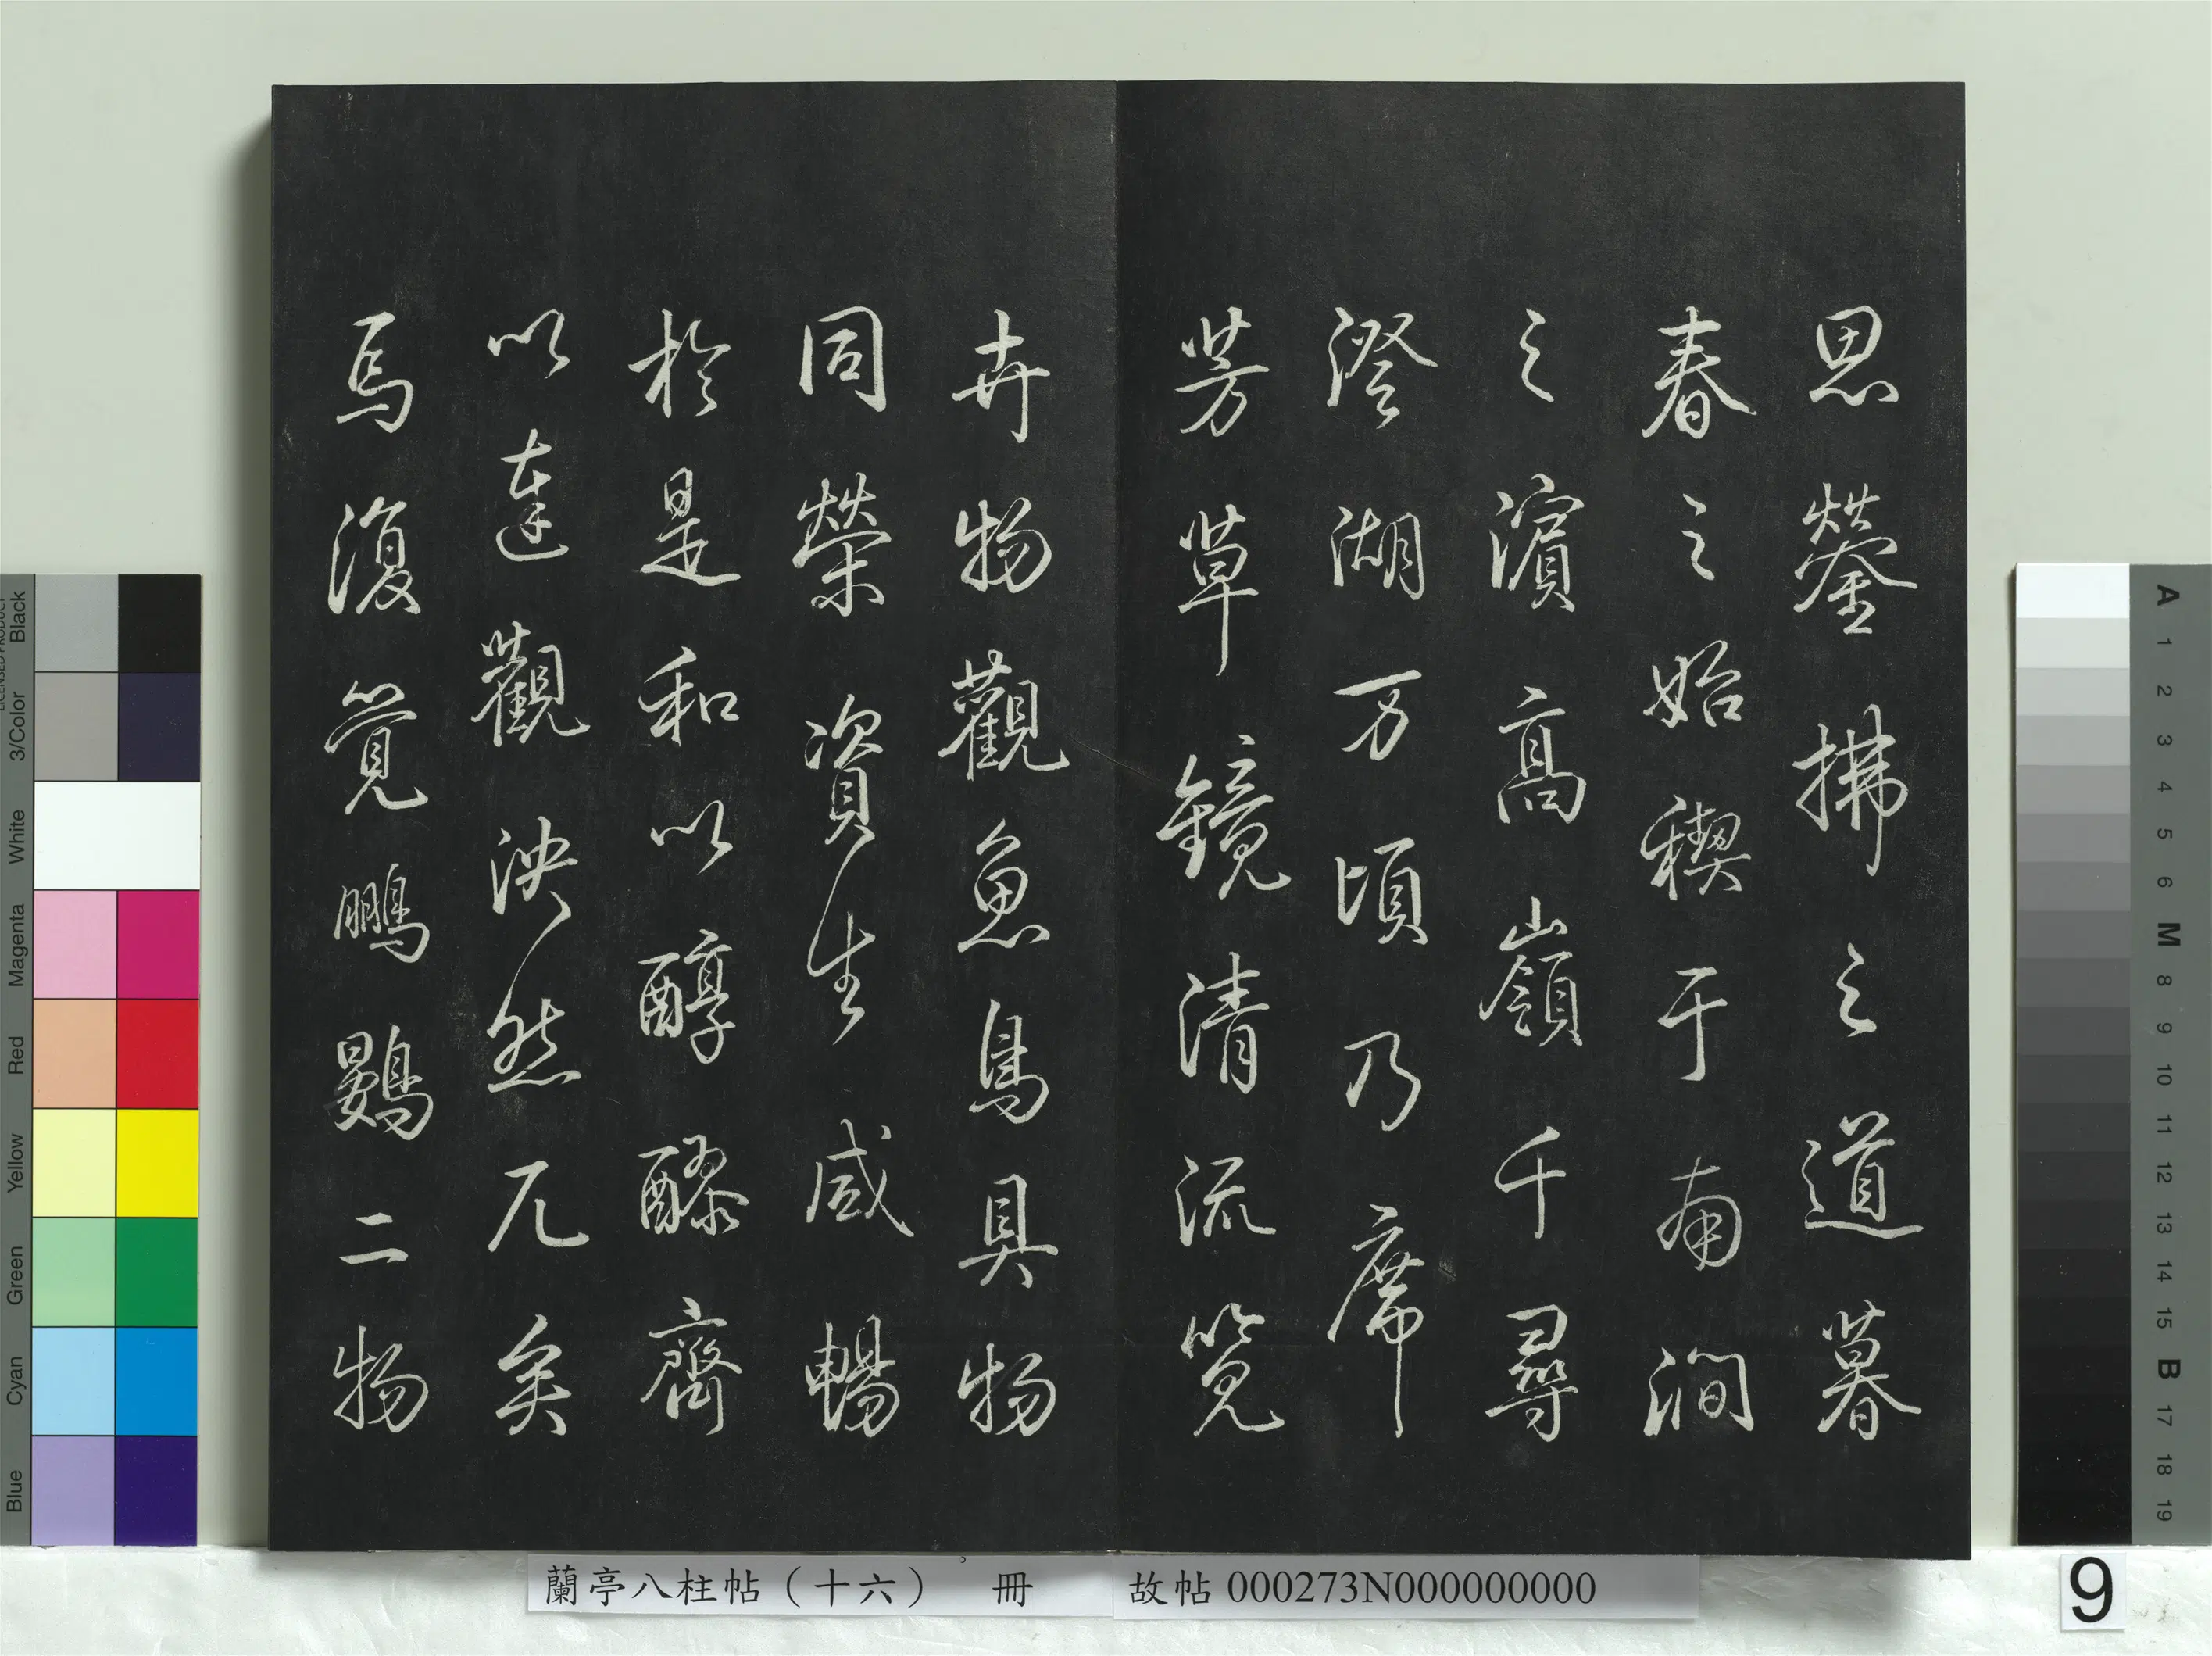 思鎣拂之道暮
春之始禊于南澗
之濱高嶺千尋
澄湖万頃乃席
芳草鏡清流覽
卉物觀魚鳥具物
同榮資生咸暢
於是和以醇醪齊
以達觀決然兀矣
焉復覺鵬鷃二物
蘭亭八柱帖（十六） 冊 故帖 000273N000000000
9
Black
3/Color
White
Magenta
Red
Yellow
Green
Cyan
Blue
A 1 2 3 4 5 6 M 8 9 10 11 12 13 14 15 B 17 18 19